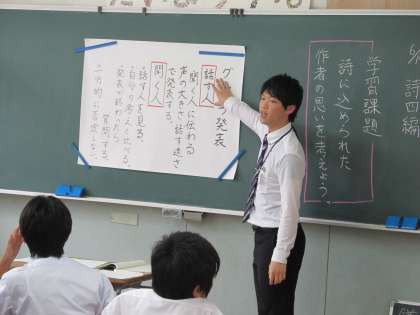 詩四編
学習課題
詩に込められた
作者の思いを考えよう。
グ
発表
話す人
聞く人に伝わる
声の大きさ、話す速さ
で発表する。
聞く人
・話す人を見る。
・自分の考えと比べる。
・発表が終わったら
質問する。